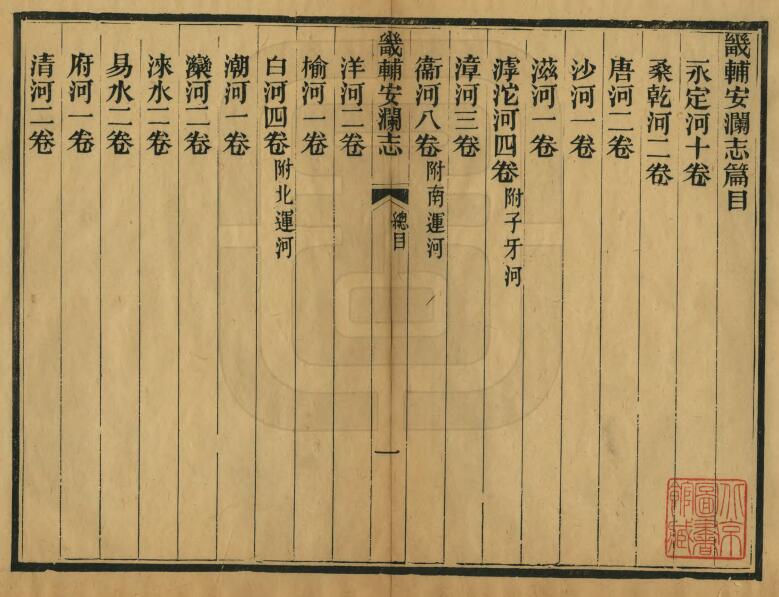 畿輔安瀾志篇目
永定河十卷
桑乾河二卷
唐河二卷
沙河一卷
滋河一卷
滹沱河四卷附子牙河
漳河三卷
衞河八卷附南運河
畿輔安瀾志 總目 一
洋河二卷
榆河一卷
白河四卷附北運河
潮河一卷
灤河二卷
淶水二卷
易水二卷
府河一卷
清河二卷
北京圖書館藏